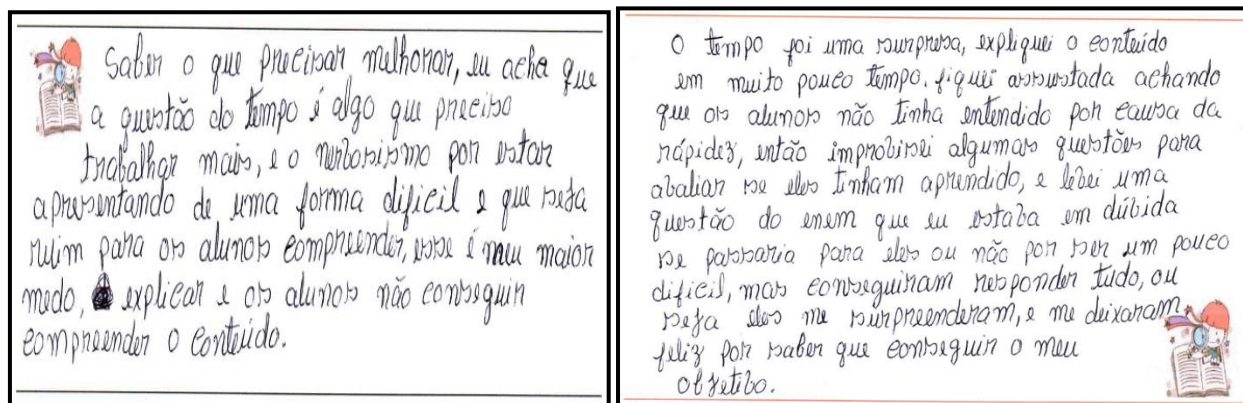 Saber o que precisar melhorar, eu acha que
a questão do tempo é algo que preciso
trabalhar mais, e o nerbosismo por estar
apresentando de uma forma dificil e que seja
ruim para os alunos compreender, esse é meu maior
medo, explicar e os alunos não conseguir
compreender o conteúdo.
O tempo foi uma surpresa, expliquei o conteúdo
em muito pouco tempo, fiquei assustada achando
que os alunos não tinha entendido por causa da
rápidez, então improbisei algumas questões para
abaliar se eles tinham aprendido, e lebei uma
questão do enem que eu estaba em dúbida
se passaria para eles ou não por ser um pouco
dificil, mas conseguiram responder tudo, ou
seja eles me surpreenderam, e me deixaram
feliz por saber que conseguir o meu
objetibo.